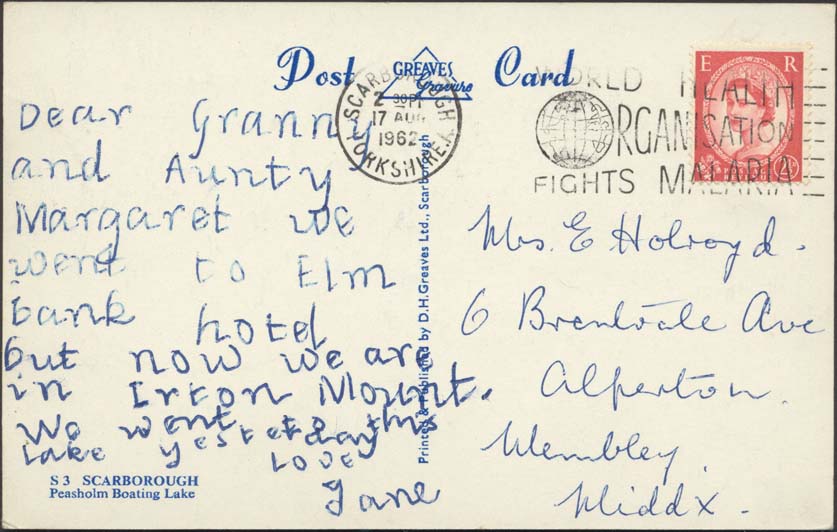 Post GREAVES Gravure Card
SCARBOROUGH
2 30 PM
17 AUG
1962
YORKSHIRE
WORLD HEALTH
ORGANISATION
FIGHTS MALARIA
E R
2½
Dear Granny
and Aunty
Margaret we
went to Elm
bank hotel
but now we are
in Irton Mount.
We went to this
Lake yesterday
Love
Jane
S 3 SCARBOROUGH
Peasholm Boating Lake
Printed & Published by D.H.Greaves Ltd., Scarborough
Mrs. E Holroyd.
6 Brentvale Ave
Alperton.
Wembley.
Middx.